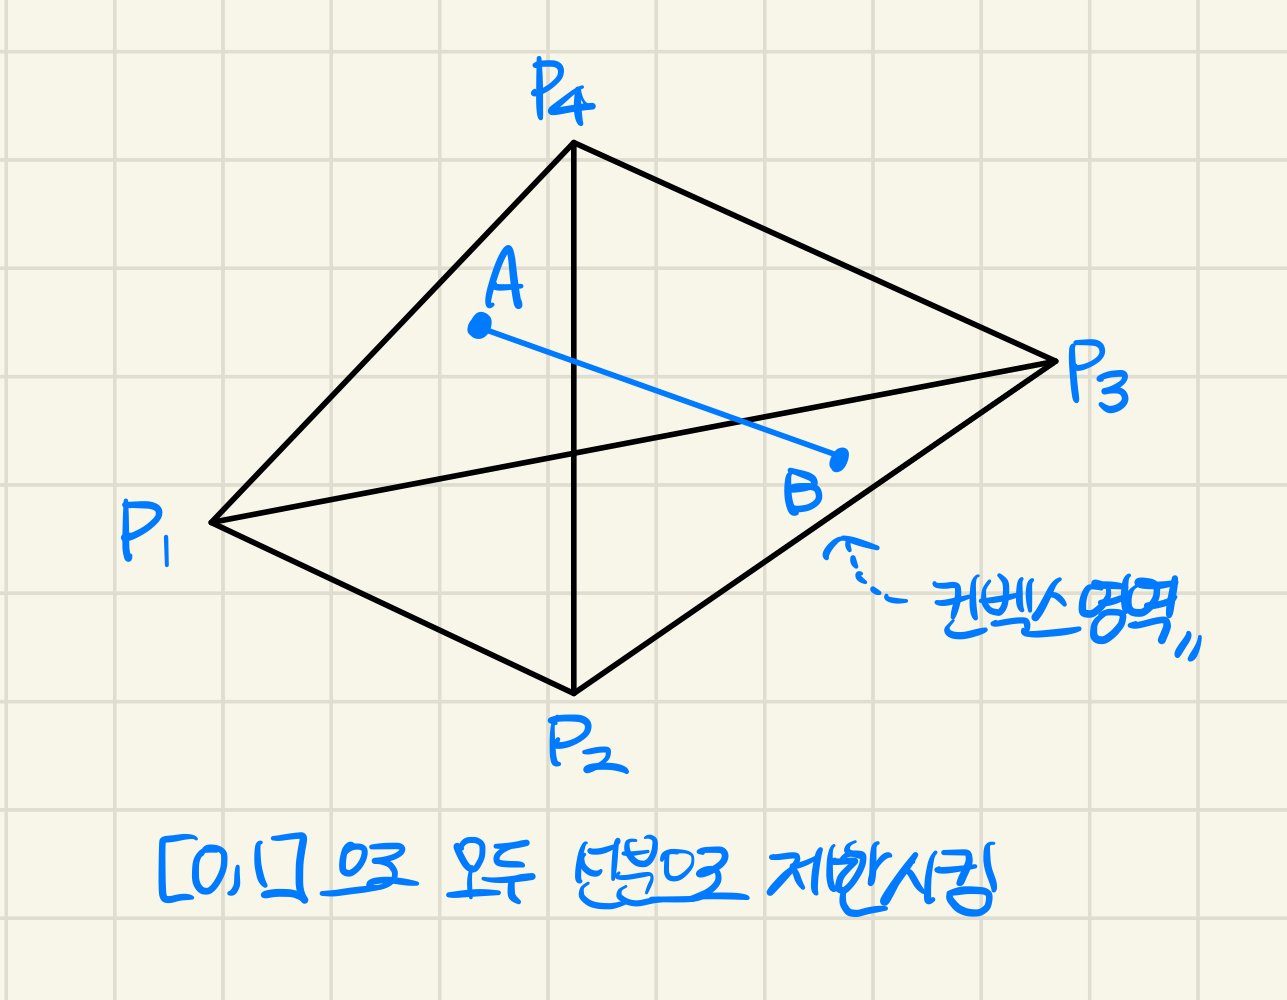 P4
A
P3
B
P1
컨벡스 영역〃
P2
[0,1]으로 모두 선분으로 제한시킴